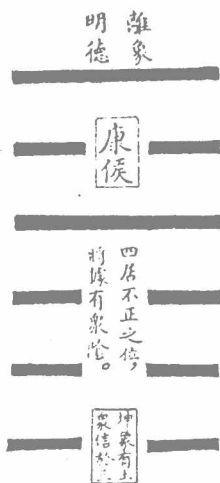 離象
明德
康侯
四居不正之位，
將據有衆陰。
坤象有土
衆信於